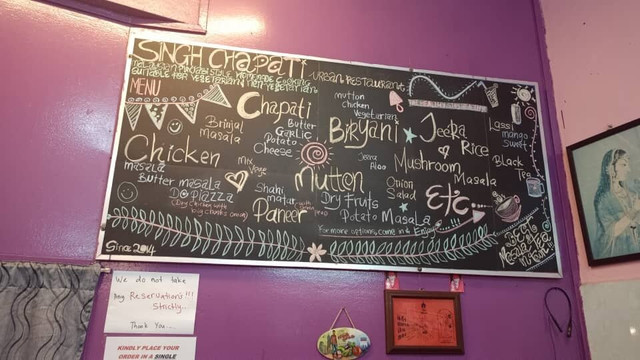 SINGH CHAPATI
-URBAN RESTAURANT-
MALAYSIAN PUNJABI STYLE HOMEMADE COOKING
SUITABLE FOR VEGETARIAN / NON VEGETARIAN
MENU
Chapati
Butter
Garlic
Potato
Cheese
Brinjal
masala
Chicken
masala
Butter masala
Do Piazza
(Dry chicken with
big chunks onion)
Mix
Vege
Shahi
matar
Paneer
mutton
chicken
Vegetarian
Biryani
Jeera
Aloo
Mutton
Dry Fruits
Potato Masala
Jeera
Rice
Mushroom
Masala
Onion
Salad
Etc...
Lassi
mango
sweet
Black
Tea
For more options, come in & Enjoy
Since 2014
We do not take
Any Reservations!!!
Strictly...
Thank You...
KINDLY PLACE YOUR
ORDER IN A SINGLE